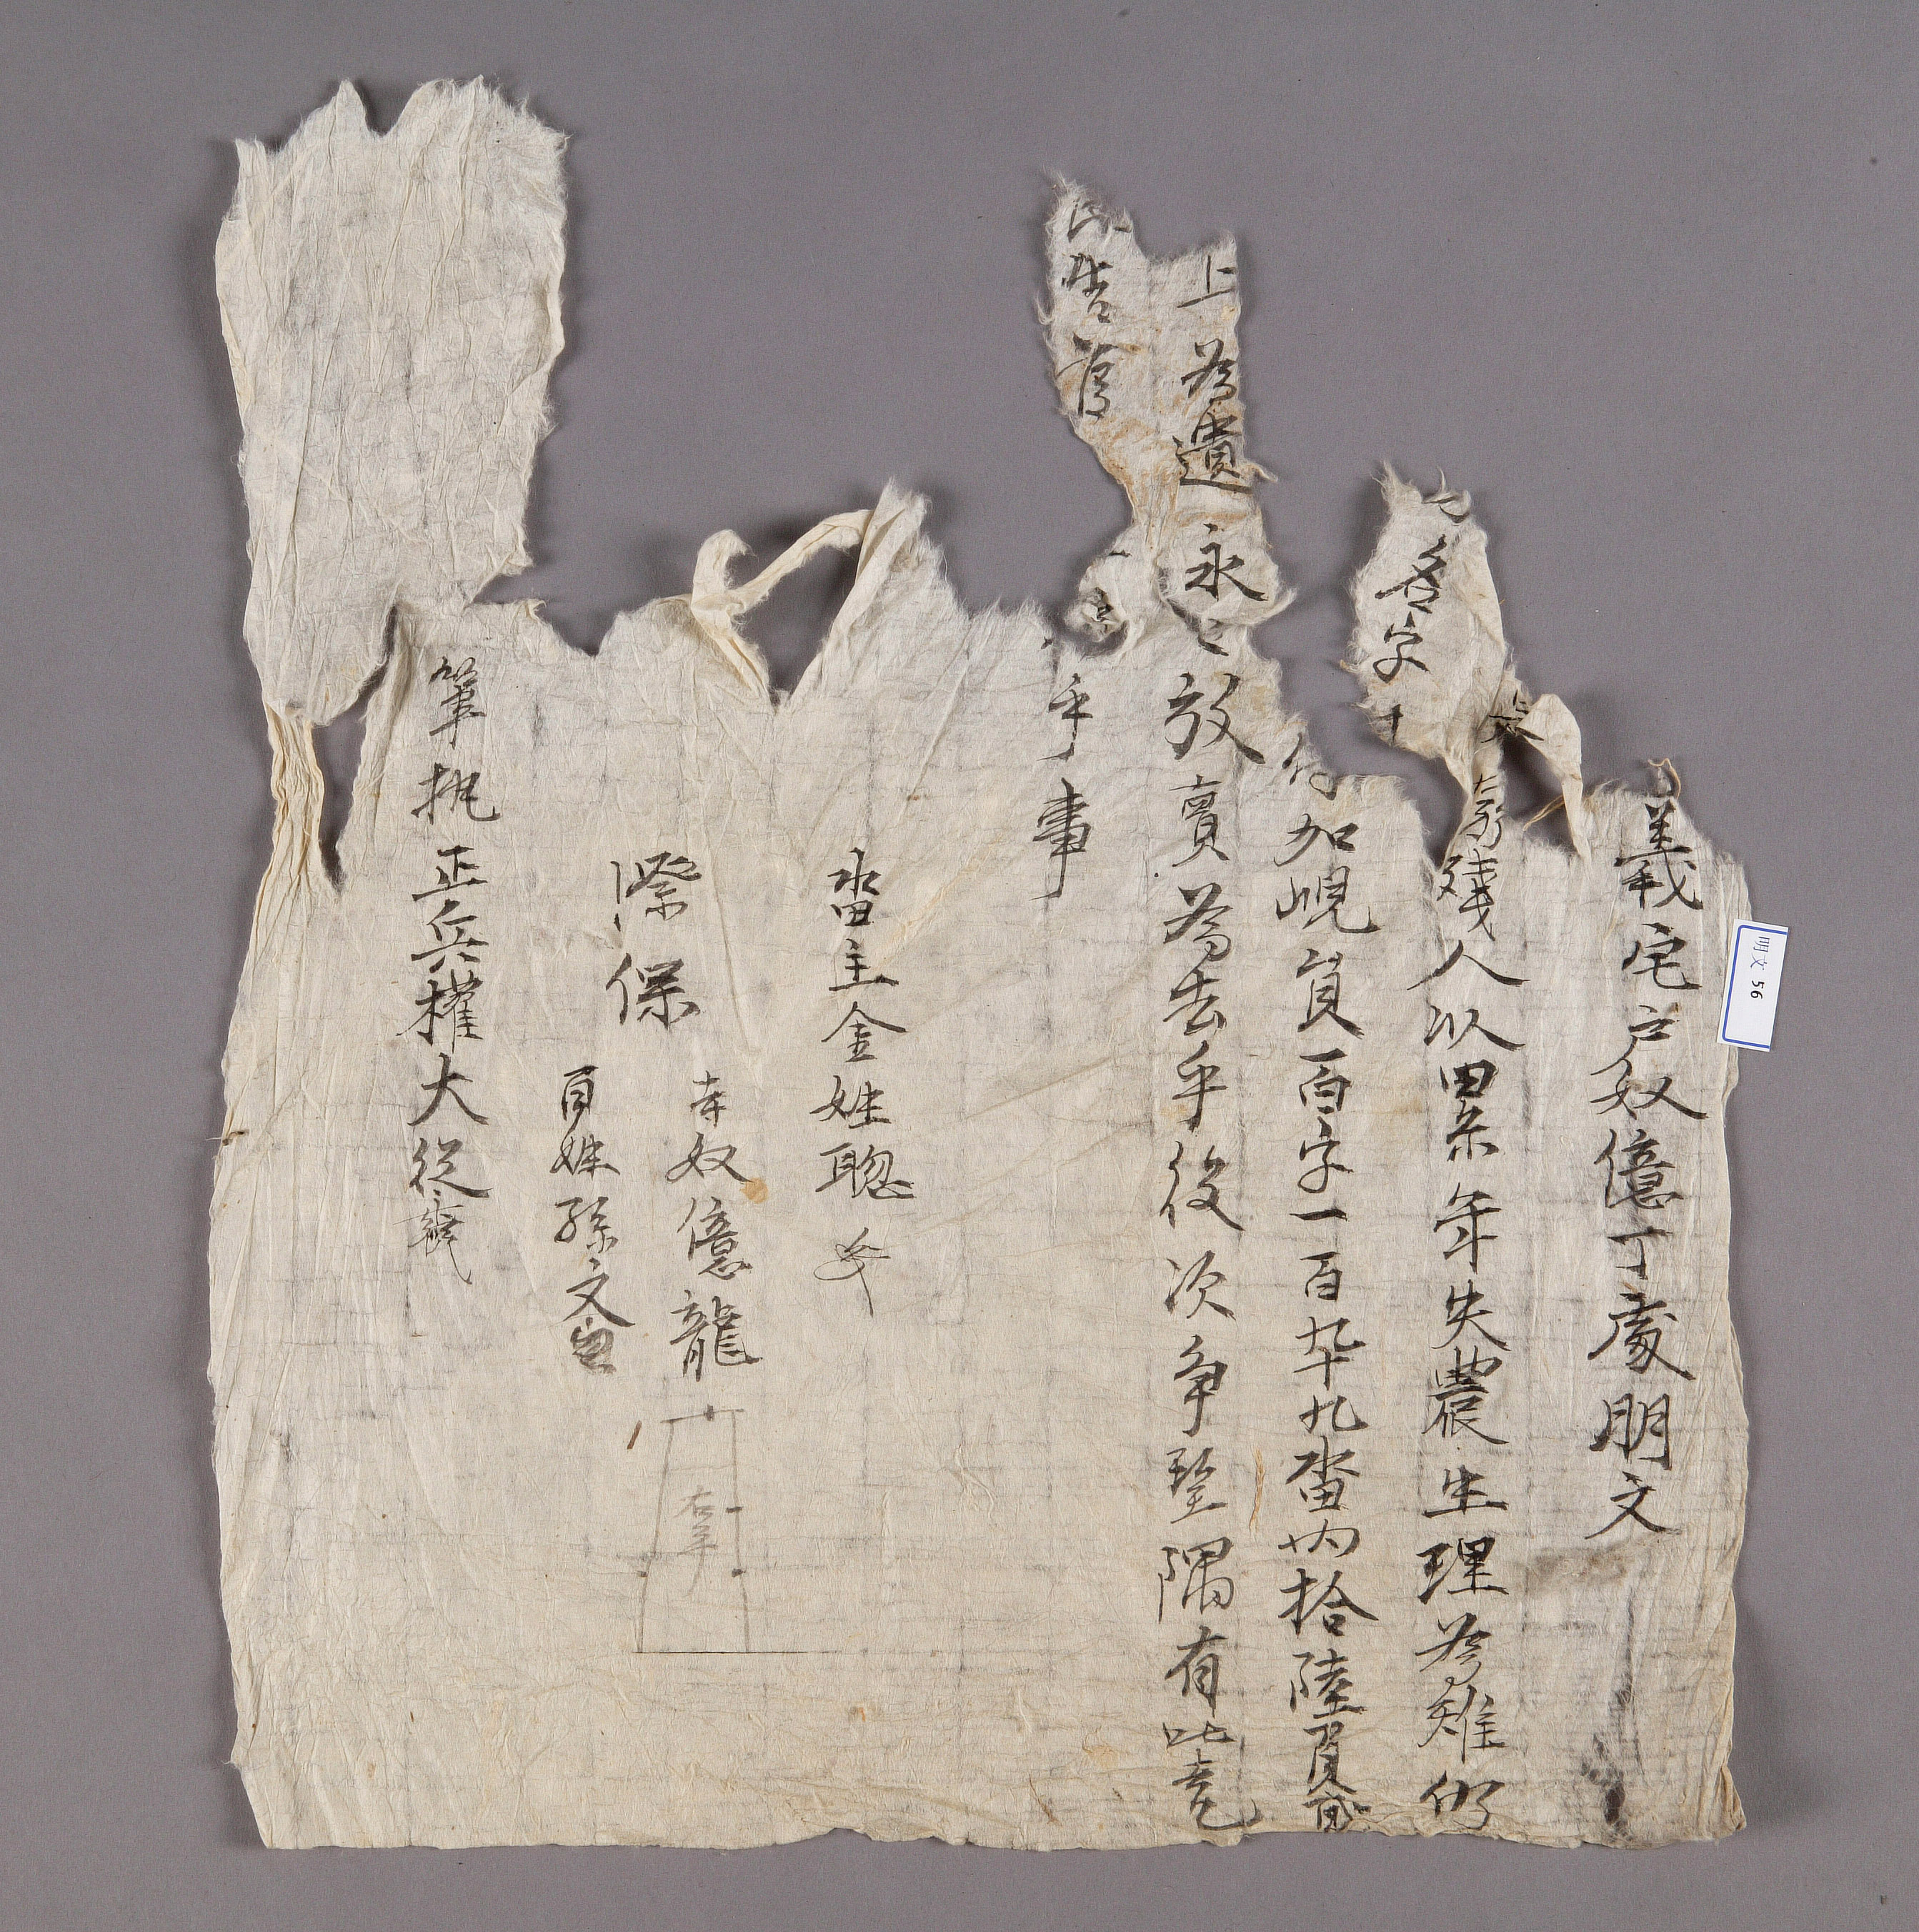 義宅戶奴億丁處明文
殘人以累年失農生理爲難仍
名字十
加峴員百字一百卆九畓內拾陸負貳
上 爲遣永〻放賣爲去乎後次爭望隅有此㐂
告官
乎事
畓主金姓聰
際保
寺奴億龍
右手
百姓孫文
筆執正兵權大從
明文 56